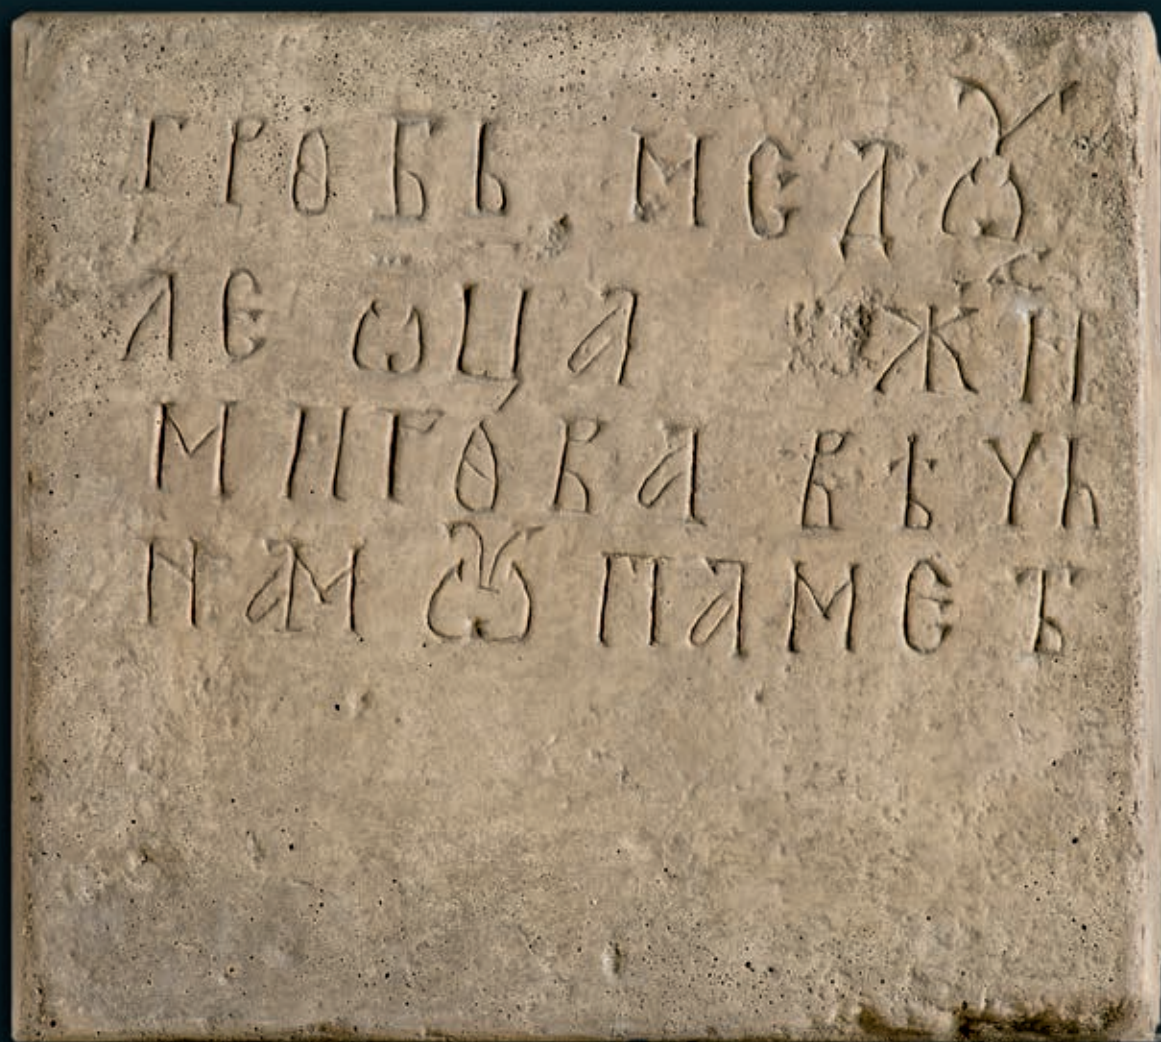 гробь медꙋ
ле ѡца жи
мигова вѣчь
наꙗ ѿ памет